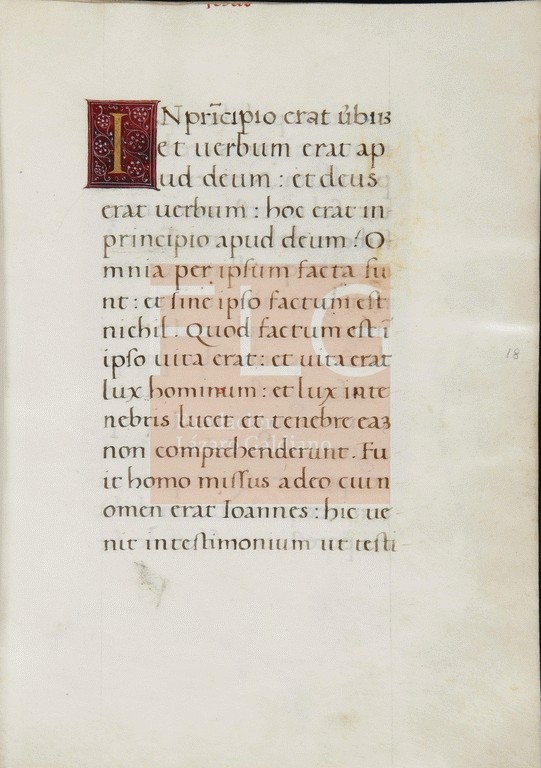 IN pri̅cipio erat v̅bu3
et uerbum erat ap
ud deum : et deus
erat uerbum : hoc erat in
principio apud deum : O
mnia per ipſum facta ſu
nt : et ſine ipſo factum eſt
nichil. Quod factum eſt i̅
ipſo uita erat : et uita erat
lux hominum : et lux inte
nebris lucet et tenebre ea3
non comprehenderunt. Fu
it homo miſſus a deo cui n
omen erat Ioannes : hic ue
nit in teſtimonium ut teſti
18
FLG
Fundación
Lázaro Galdiano